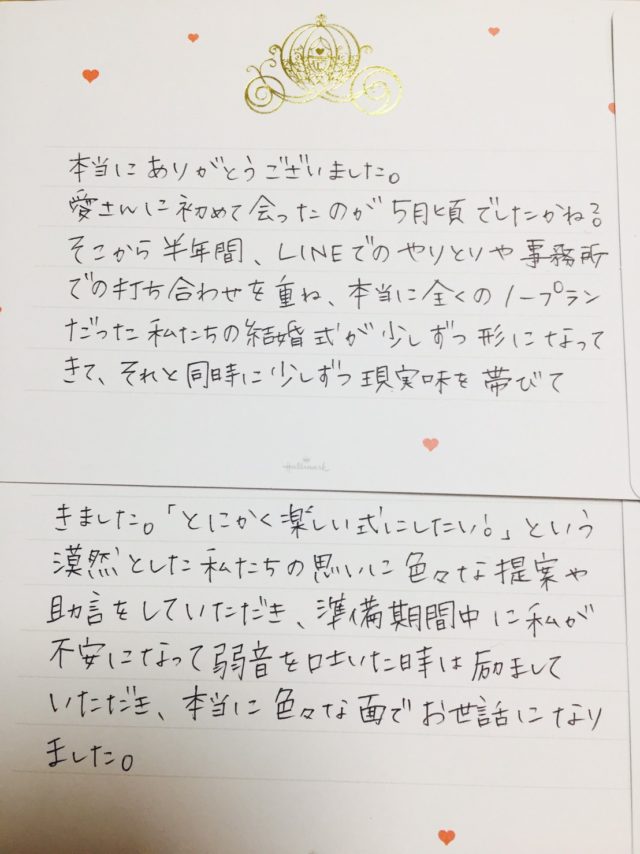 本当にありがとうございました。
愛さんに初めて会ったのが5月頃でしたかね?
そこから半年間、LINEでのやりとりや事務所
での打ち合わせを重ね、本当に全くのノープラン
だった私たちの結婚式が少しずつ形になって
きて、それと同時に少しずつ現実味を帯びて
Hallmark
きました。「とにかく楽しい式にしたい!」という
漠然とした私たちの思いに色々な提案や
助言をしていただき、準備期間中に私が
不安になって弱音を吐いた時は励まして
いただき、本当に色々な面でお世話になり
ました。